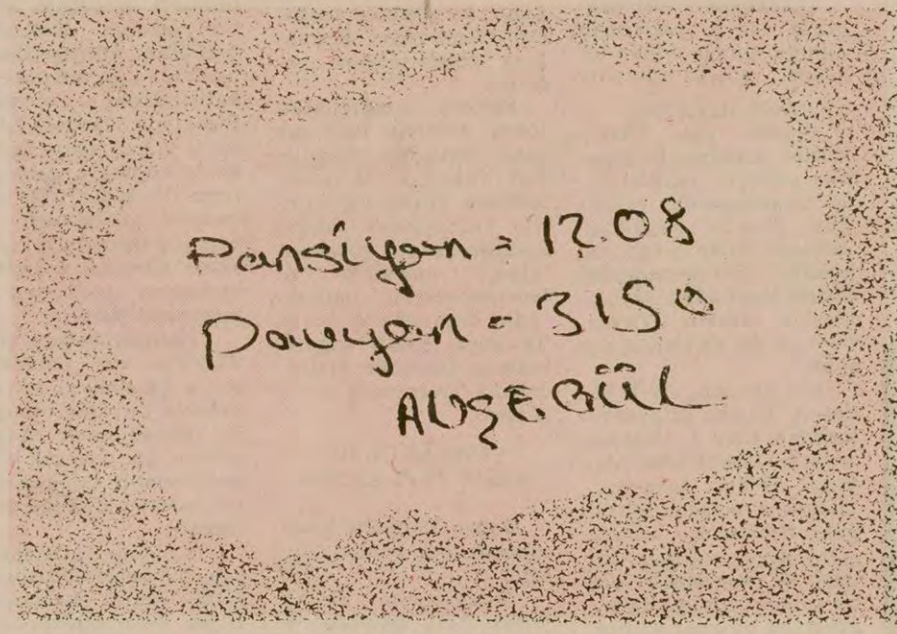 Pansiyon = 12.08
Pavyon = 3150
AYŞEGÜL